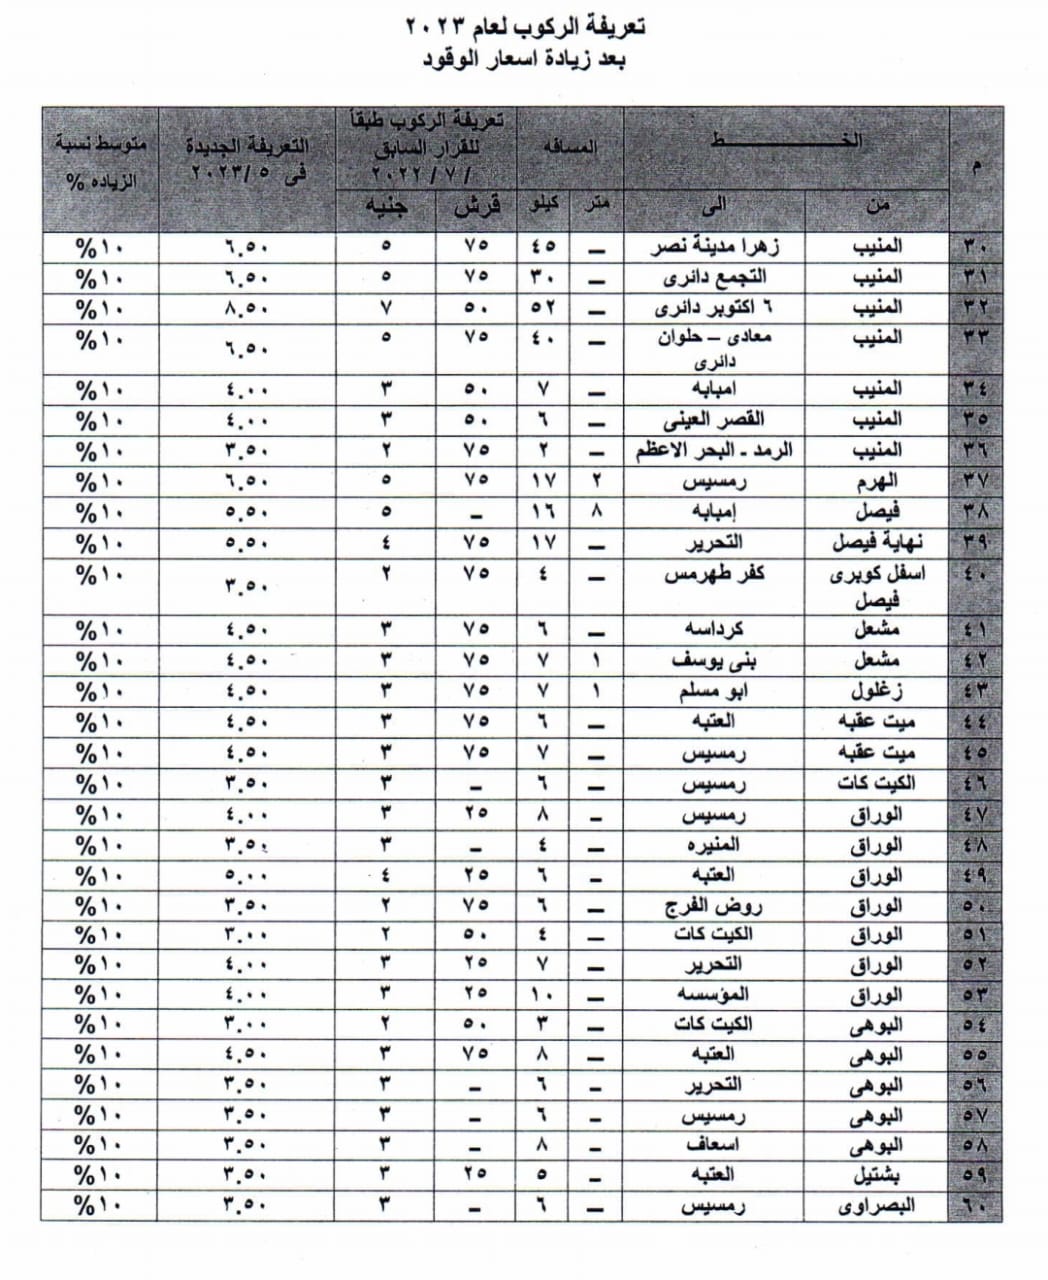 تعريفة الركوب لعام ٢٠٢٣
بعد زيادة اسعار الوقود
م الخـــــــــط المسافه تعريفة الركوب طبقاً للقرار السابق / ٧ / ٢٠٢٢ التعريفة الجديدة فى ٥ /٢٠٢٣ متوسط نسبة الزياده %
من الى متر كيلو قرش جنيه
٣٠ المنيب زهرا مدينة نصر – ٤٥ ٧٥ ٥ ٦.٥٠ ١٠%
٣١ المنيب التجمع دائرى – ٣٠ ٧٥ ٥ ٦.٥٠ ١٠%
٣٢ المنيب ٦ اكتوبر دائرى – ٥٢ ٥٠ ٧ ٨.٥٠ ١٠%
٣٣ المنيب معادى – حلوان – ٤٠ ٧٥ ٥ ٦.٥٠ ١٠%
دائرى
٣٤ المنيب امبابه – ٧ ٥٠ ٣ ٤.٠٠ ١٠%
٣٥ المنيب القصر العينى – ٦ ٥٠ ٣ ٤.٠٠ ١٠%
٣٦ المنيب الرمد - البحر الاعظم – ٢ ٧٥ ٢ ٣.٥٠ ١٠%
٣٧ الهرم رمسيس ٢ ١٧ ٧٥ ٥ ٦.٥٠ ١٠%
٣٨ فيصل إمبابه ٨ ١٦ – ٥ ٥.٥٠ ١٠%
٣٩ نهاية فيصل التحرير – ١٧ ٧٥ ٤ ٥.٥٠ ١٠%
٤٠ اسفل كوبرى كفر طهرمس – ٤ ٧٥ ٢ ٣.٥٠ ١٠%
فيصل
٤١ مشعل كرداسه – ٦ ٧٥ ٣ ٤.٥٠ ١٠%
٤٢ مشعل بنى يوسف ١ ٧ ٧٥ ٣ ٤.٥٠ ١٠%
٤٣ زغلول ابو مسلم ١ ٧ ٧٥ ٣ ٤.٥٠ ١٠%
٤٤ ميت عقبه العتبه – ٦ ٧٥ ٣ ٤.٥٠ ١٠%
٤٥ ميت عقبه رمسيس – ٧ ٧٥ ٣ ٤.٥٠ ١٠%
٤٦ الكيت كات رمسيس – ٦ – ٣ ٣.٥٠ ١٠%
٤٧ الوراق رمسيس – ٨ ٢٥ ٣ ٤.٠٠ ١٠%
٤٨ الوراق المنيره – ٤ – ٣ ٣.٥٠ ١٠%
٤٩ الوراق العتبه – ٦ ٢٥ ٤ ٥.٠٠ ١٠%
٥٠ الوراق روض الفرج – ٦ ٧٥ ٢ ٣.٥٠ ١٠%
٥١ الوراق الكيت كات – ٤ ٥٠ ٢ ٣.٠٠ ١٠%
٥٢ الوراق التحرير – ٧ ٢٥ ٣ ٤.٠٠ ١٠%
٥٣ الوراق المؤسسه – ١٠ ٢٥ ٣ ٤.٠٠ ١٠%
٥٤ البوهى الكيت كات – ٣ ٥٠ ٢ ٣.٠٠ ١٠%
٥٥ البوهى العتبه – ٨ ٧٥ ٣ ٤.٥٠ ١٠%
٥٦ البوهى التحرير – ٦ – ٣ ٣.٥٠ ١٠%
٥٧ البوهى رمسيس – ٦ – ٣ ٣.٥٠ ١٠%
٥٨ البوهى اسعاف – ٨ – ٣ ٣.٥٠ ١٠%
٥٩ بشتيل العتبه – ٥ ٢٥ ٣ ٣.٥٠ ١٠%
٦٠ البصراوى رمسيس – ٦ – ٣ ٣.٥٠ ١٠%